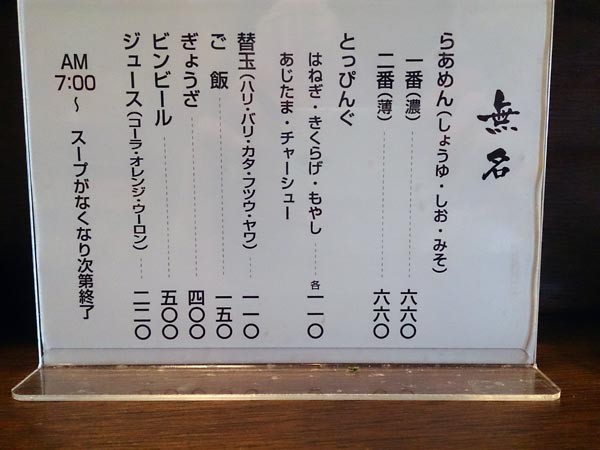 無名
らあめん（しょうゆ・しお・みそ）
一番（濃）六六〇
二番（薄）六六〇
とっぴんぐ
はねぎ・きくらげ・もやし
あじたま・チャーシュー 各一一〇
替玉（ハリ・バリ・カタ・フツウ・ヤワ）一一〇
ご飯 一五〇
ぎょうざ 四〇〇
ビンビール 五〇〇
ジュース（コーラ・オレンジ・ウーロン）二二〇
AM 7:00～ スープがなくなり次第終了